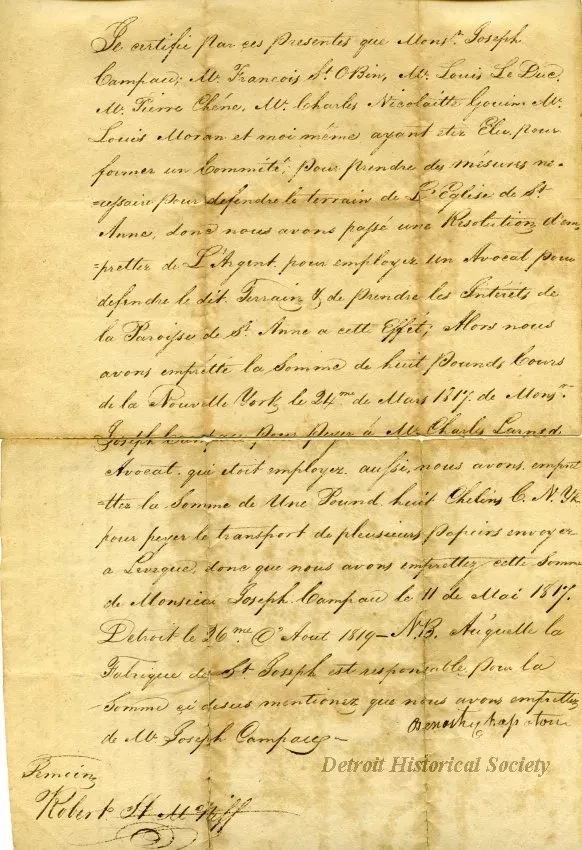 Je certifie par ces presentes que Monsr. Joseph
Campau; Mr. Francois St. OBin, Mr. Louis Le Duc,
Mr. Pierre Chéne, Mr. Charles Nicolaitte Gouin Mr.
Louis Moran et moi même ayant eter Elu, pour
former un Committé, pour prendre des mésures né-
-cessaire pour defendre le terrain de L'Eglise de St.
Anne, donc nous avons passé une Résolution d'em
=pretter de L'Argent pour employer un Avocat pour
defendre le dit Terrain & de prendre les Intérets de
la Paroisse de St. Anne a cette Effét; Alors nous
avons emprétté la Somme de huit Pounds Cours
de la Nouvelle York, le 24me de Mars 1817. de Monsr.
Joseph Campau pour payer á Mr. Charles Larned
Avocat qui doit employez aussi, nous avons empret
=ttez la Somme de Une Pound huit Chelins C. N. Yk
pour payer le transport de pleusieurs Papiers envoyez
a Leveque, donc que nous avons emprettez cette Somme
de Monsieur Joseph Campau le 11 de Mai 1817.
Detroit le 26me. Aout 1819 - N.B. Au'quelle la
Fabrique de St Joseph est responsable pour la
Somme ci desus mentionez que nous avons emprettez
de Mr. Joseph Campau -
Temoin
Robert
Detroit Historical Society